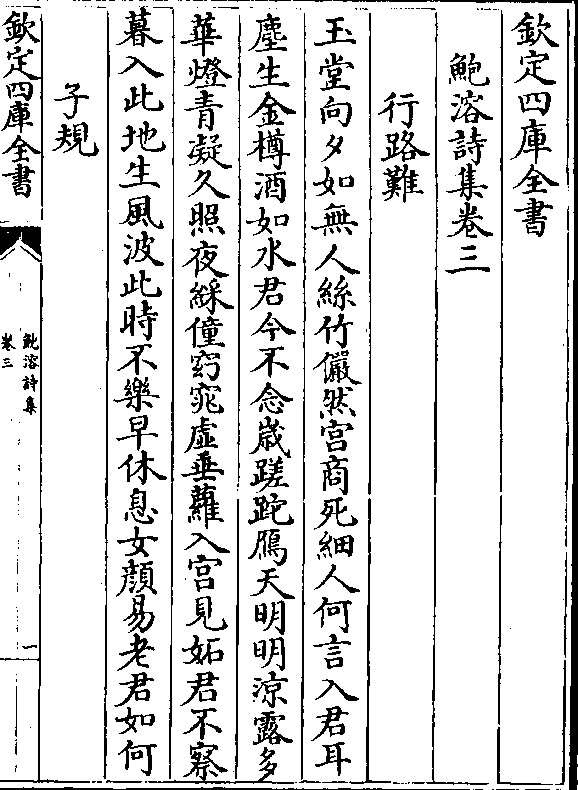 欽定四庫全書
鮑溶詩集卷三
行路難
玉堂向夕如無人絲竹儼然宫商死細人何言入君耳
塵生金樽酒如水君今不念嵗蹉跎鴈天明明涼露多
華燈青凝久照夜綵僮窈窕虛垂蘿入宫見妬君不察
暮入此地生風波此時不樂早休息女顔易老君如何
子規
欽定四庫全書
鮑溶詩集
卷三
一